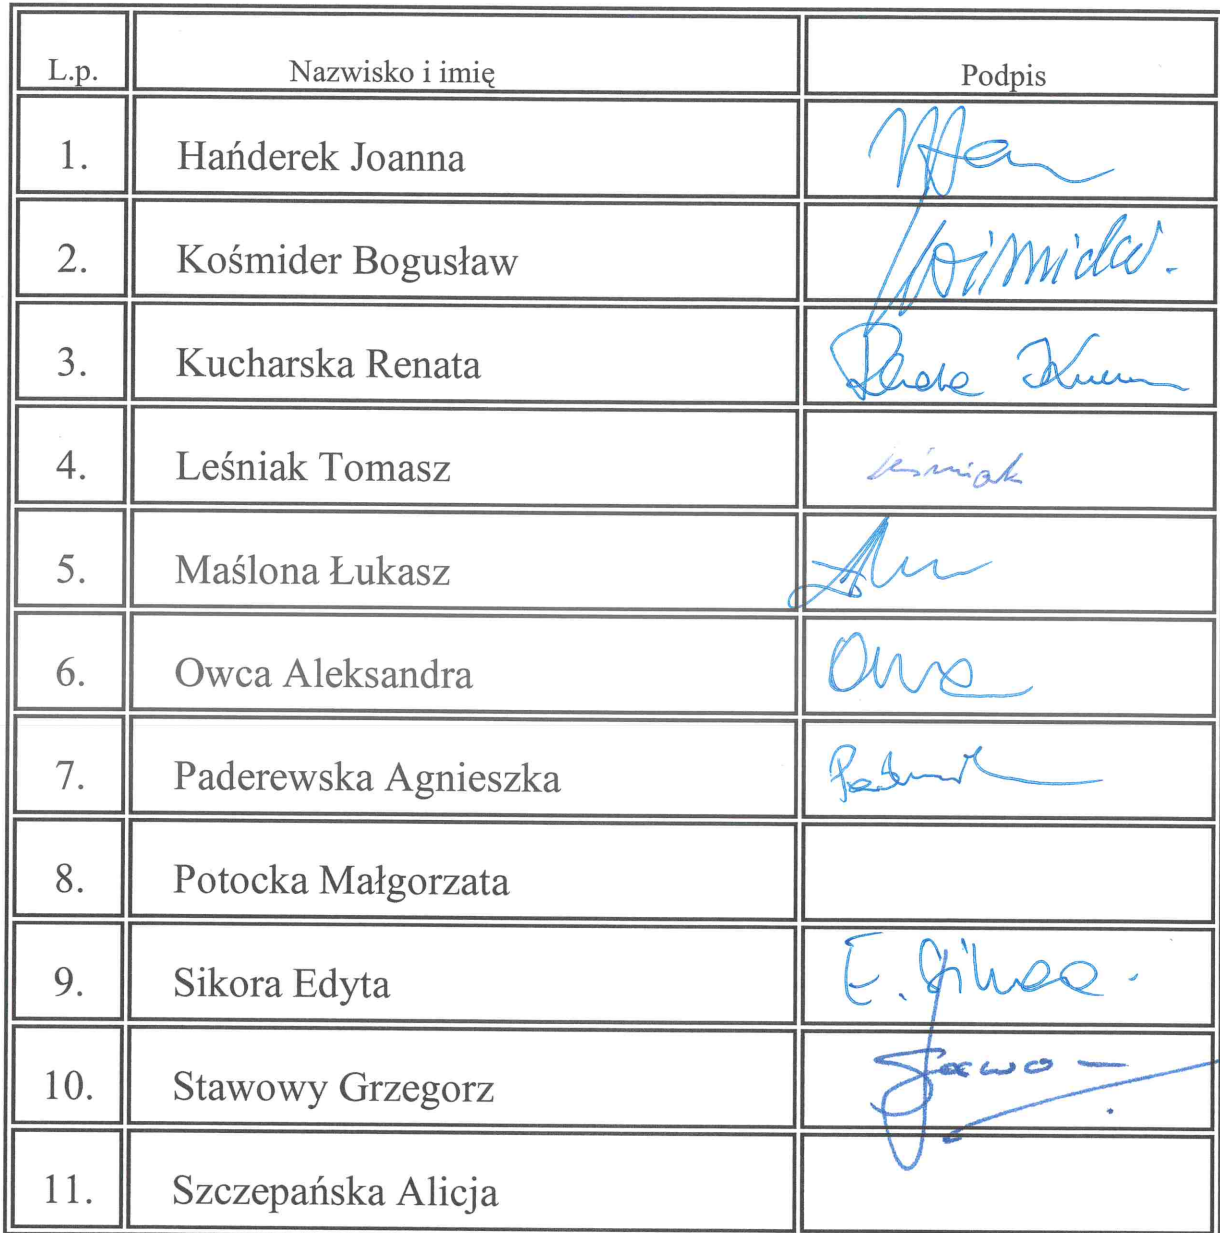 L.p. Nazwisko i imię Podpis
1. Hańderek Joanna
2. Kośmider Bogusław
3. Kucharska Renata
4. Leśniak Tomasz Leśniak
5. Maślona Łukasz
6. Owca Aleksandra
7. Paderewska Agnieszka
8. Potocka Małgorzata
9. Sikora Edyta E.
10. Stawowy Grzegorz
11. Szczepańska Alicja